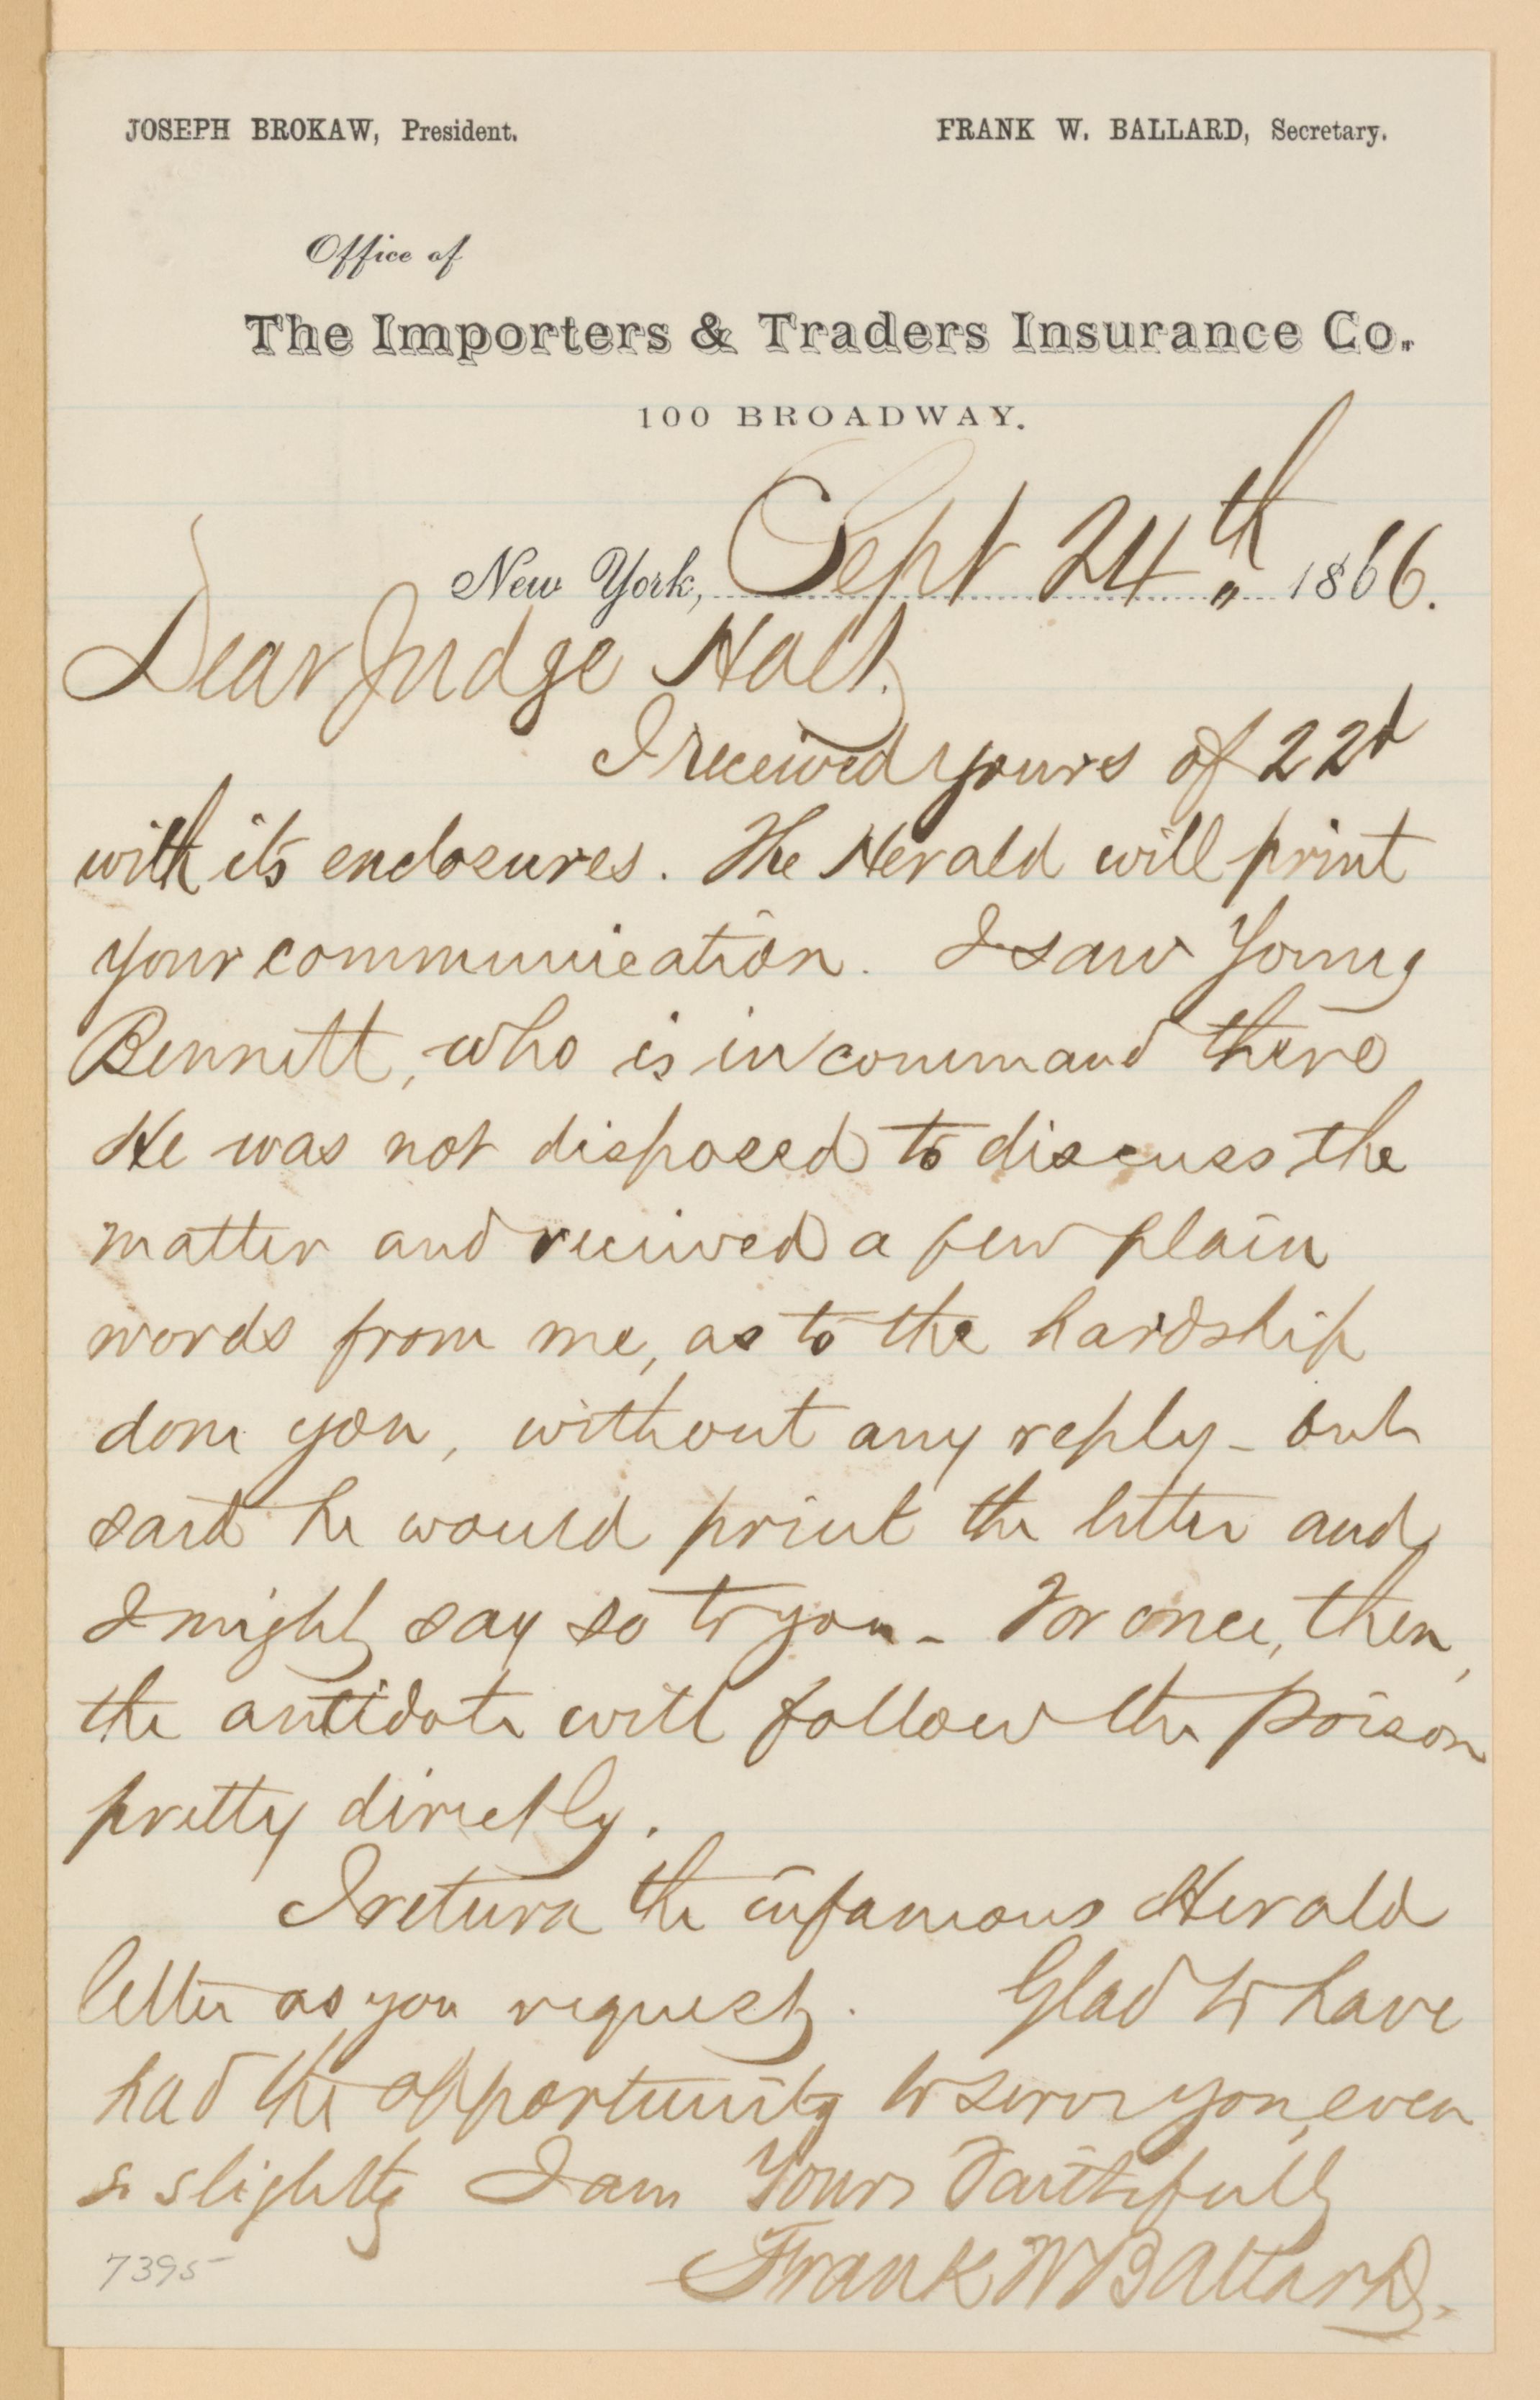 JOSEPH BROKAW, President. FRANK W. BALLARD, Secretary.
Office of
The Importers & Traders Insurance Co.
100 BROADWAY.
New York, Sept 24th 1866.
Dear Judge Holt,
I received yours of 22d
with its enclosures. The Herald will print
your communication. I saw Young
Bennett, who is in command there
He was not disposed to discuss the
matter and received a few plain
words from me, as to the hardship
done you, without any reply - but
said he would print the letter and
I might say so to you - For once, then,
the antidote will follow the poison
pretty directly.
I return the infamous Herald
letter as you request. Glad to have
had the opportunity to serve you, even
so slightly I am Yours Faithfully
Frank W Ballard.
7395